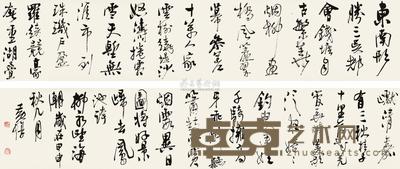 東南形
勝三吳都
會錢塘自
古繁華
烟柳畫
橋風簾翠
幕參差
十萬人家
雲樹繞堤沙
怒濤捲霜
雪天塹無
涯市列
珠璣戶盈
羅綺競豪
奢重湖疊
巘清嘉
有三秋桂子
十里荷花
羌管弄晴
菱歌
泛夜嬉嬉
釣叟蓮娃
千騎擁高
牙乘醉聽
簫鼓吟賞
烟霞異日
圖將好景
歸去鳳
池誇
柳永望海
潮歲在甲申
秋九月